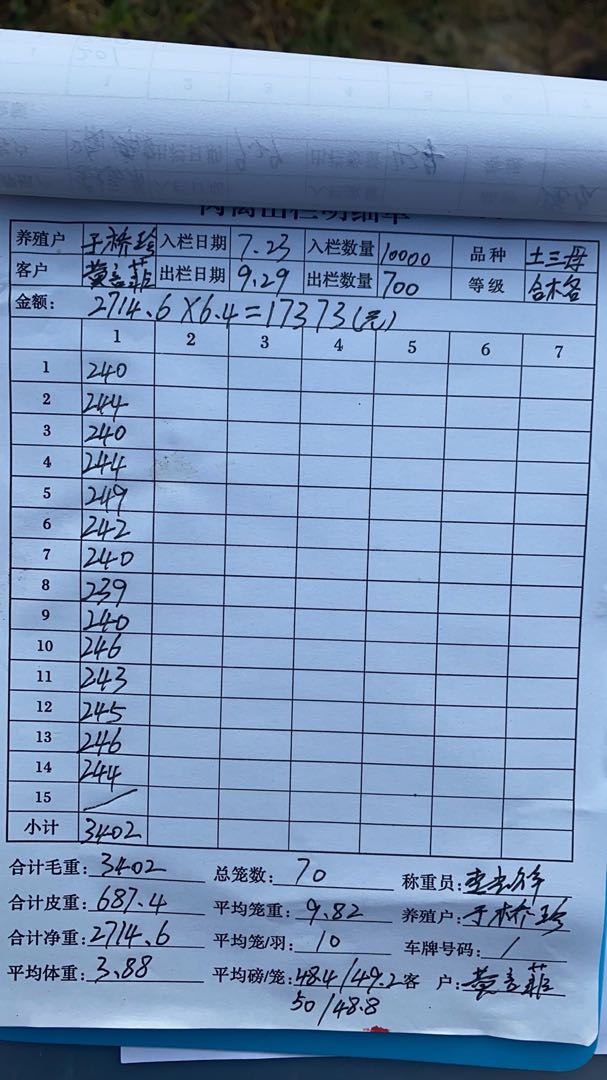 肉禽出栏明细单
养殖户 于桥珍 入栏日期 7.23 入栏数量 10000 品种 土三母
客户 黄立菲 出栏日期 9.29 出栏数量 700 等级 合格
金额: 2714.6×6.4=17373(元)
1 2 3 4 5 6 7
1 240
2 244
3 240
4 244
5 249
6 242
7 240
8 239
9 240
10 246
11 243
12 245
13 246
14 244
15 /
小计 3402
合计毛重: 3402 总笼数: 70 称重员:
合计皮重: 687.4 平均笼重: 9.82 养殖户: 于桥珍
合计净重: 2714.6 平均笼/羽: 10 车牌号码: /
平均体重: 3.88 平均磅/笼: 48.4/49.2 客 户: 黄立菲
50/48.8